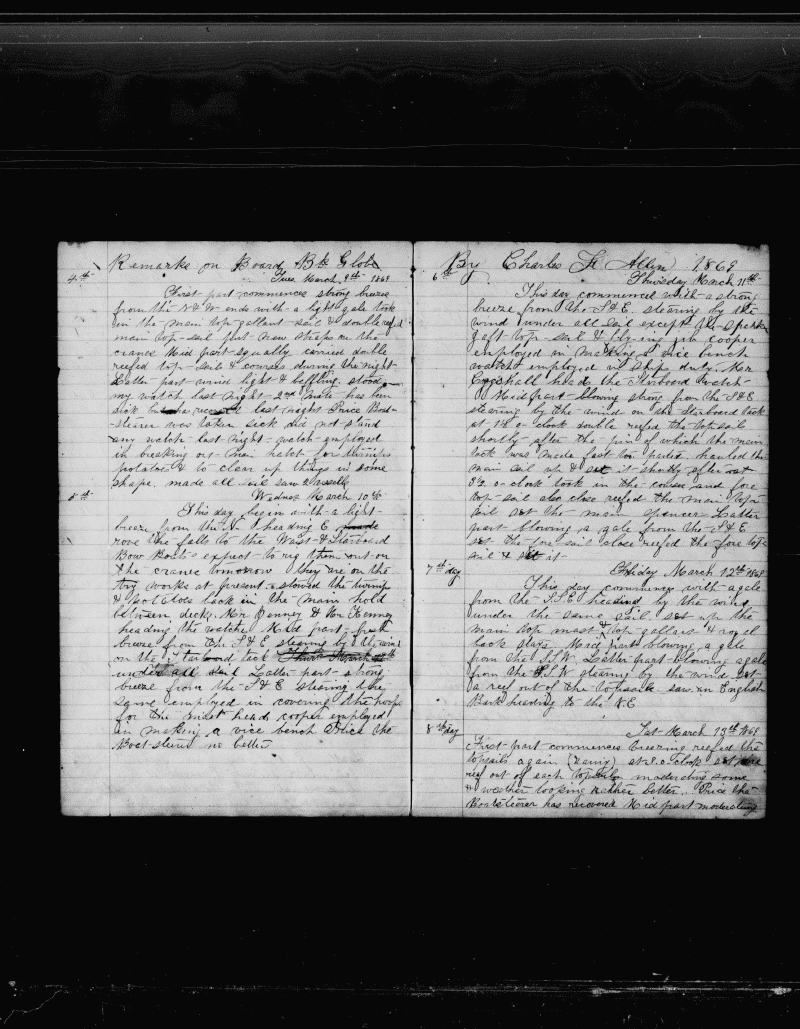 Remarks on Board Bk Globe
4th Tues March 9th 1869
First part commences strong breeze
from the N & W ends with a light gale took
in the main top gallant sail & double reefed
main top-sail put new straps on the
cranes Mid part squally carried double
reefed top-sails & courses during the night
Latter part wind light & baffling stood
my watch last night 2nd Mate has been
sick but he last night Price Boat-
steerer was taken sick did not stand
any watch last night watch employed
in breaking out main hatch for turnips
potatoes & to clear up things in some
shape. made all sail saw 2 vessels
5th Wednes March 10th
This day begin with a light
breeze from the N heading E made
rove the falls to the Waist & Starboard
Bow Boats expect to rig them out on
the cranes tomorrow they are on the
try works at present stowed the turnips
& potatoes back in the main hold
between decks Mr Denney & Mr Kenney
heading the watches Mid part fresh
breeze from the S & E steering by the wind
on the Starboard tack Thurs March 11th
under all sail Latter part strong
breeze from the S & E steering the
same employed in covering the hoops
for the mast head cooper employed
in making a vice bench Price the
Boatsteerer no better
By Charles F Allen 1869
6th Thursday March 11th
This day commenced with a strong
breeze from the S & E. steering by the
wind under all sail except the spanker
gaff-top-sail & flying jib cooper
employed in making a vice bench
watch employed in ships duty. Mr
Coggshall heads the Starboard watch
Mid part blowing strong from the S & E
steering by the wind on the Starboard tack
at 1½ o-clock double reefed the top sail
shortly after the pin of which the main
tack was made fast too parted hauled the
main sail up & set it shortly after at
3½ o-clock took in the courses and fore
top-sail also close reefed the main top-
sail set the main spencer Latter
part blowing a gale from the S & E
set the fore sail close reefed the fore top-
sail & set it
7th day Friday March 12th 1869
This day commences with a gale
from the S.S.E heading by the wind
under the same sail set up the
main top mast & top gallant & royal
back stays Mid part blowing a gale
from the S.S.W. Latter part blowing a gale
from the S.S.W steering by the wind let
a reef out of the topsails saw an English
Bark heading to the N.E
8th day Sat March 13th 1869
First part commences breezing reefed the
topsails again (rainy) at 8. o. clock let one
reef out of each topsail moderating some
& weather looking rather better. Price the
Boatsteerer has recovered Mid part moderating